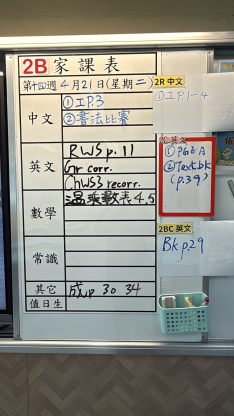 2B 家課表
第十四週 4月21日(星期二)
中文
①工P.3
②書法比賽
英文
RWS p. 11
Gr corr.
ChWS3 recorr.
數學
溫乘數表 4.5
常識
其它
成 p 30 34
值日生
2R 中文
①工P.1-4
英文
①PGEA
②Textbk
(p.39)
2BC 英文
Bk p.29